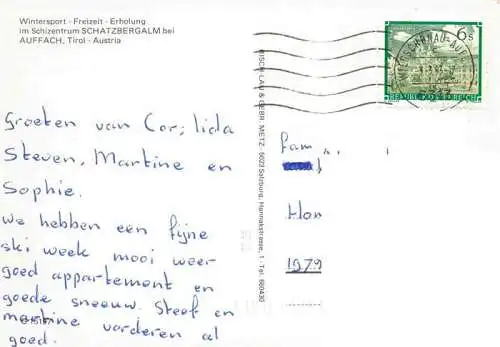 Wintersport - Freizeit - Erholung
im Schizentrum SCHATZBERGALM bei
AUFFACH, Tirol - Austria
Groeten van Cor; lida
Steven, Martine en
Sophie.
We hebben een fijne
ski week mooi weer
goed appartement en
goede sneeuw. Steef en
martine vorderen al
goed.
METZ - 5023 Salzburg, Hannakstrasse, 1 - Tel. 660430
6s
Fam
Hon
1979